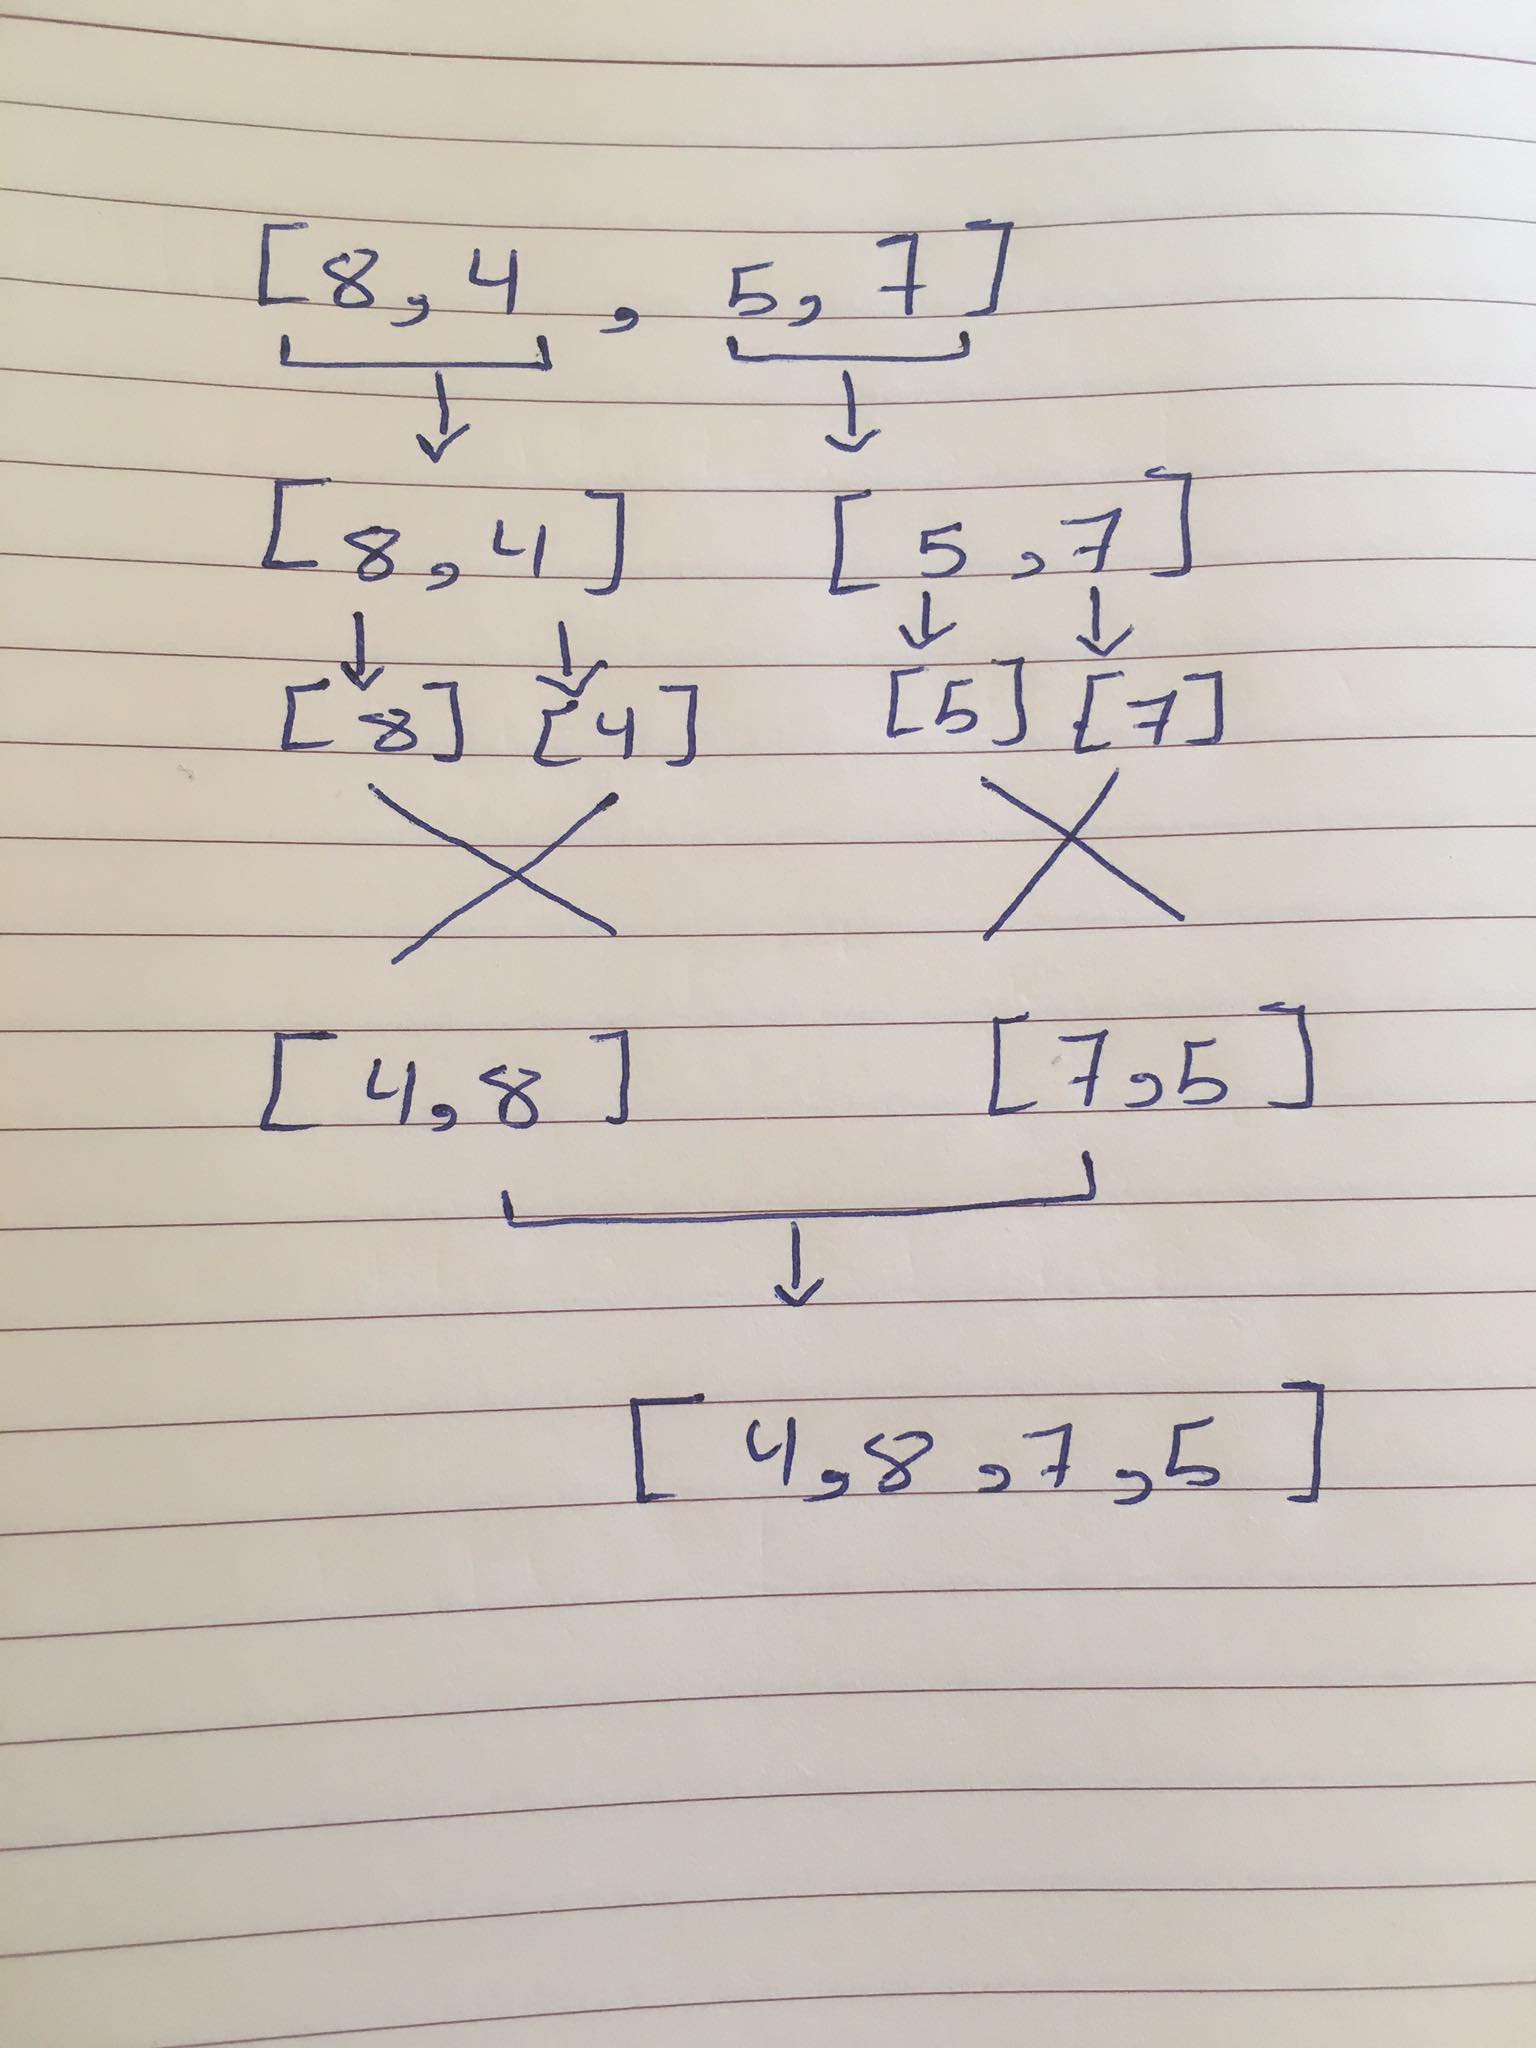 [8,4 , 5,7]
[8,4] [5,7]
[8] [4] [5] [7]
[4,8] [7,5]
[4,8,7,5]